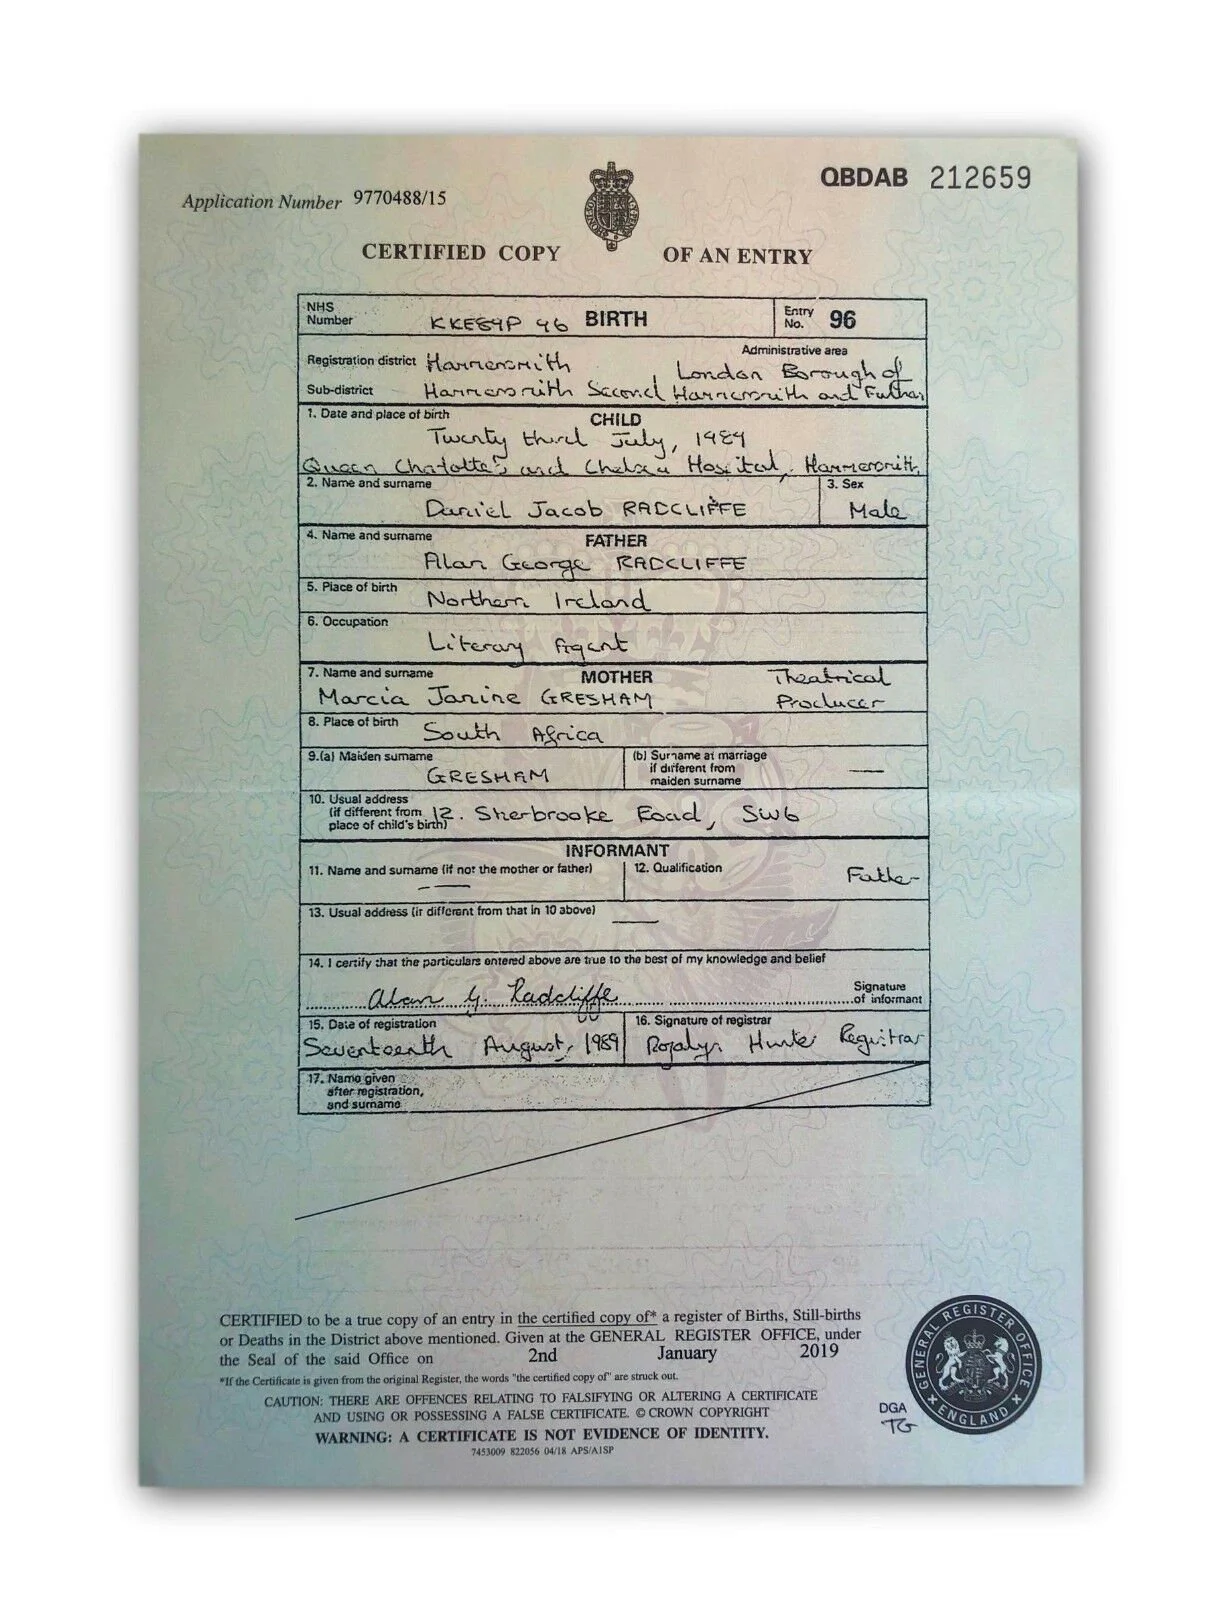 QBDAB 212659
Application Number 9770488/15
CERTIFIED COPY OF AN ENTRY
NHS Number KKE84P 96 BIRTH Entry No. 96
Administrative area
Registration district Hammersmith London Borough of
Sub-district Hammersmith Second Hammersmith and Fulham
1. Date and place of birth CHILD
Twenty third July, 1989
Queen Charlotte's and Chelsea Hospital, Hammersmith
2. Name and surname 3. Sex
Daniel Jacob RADCLIFFE Male
4. Name and surname FATHER
Alan George RADCLIFFE
5. Place of birth
Northern Ireland
6. Occupation
Literary Agent
7. Name and surname MOTHER Theatrical
Marcia Janine GRESHAM Producer
8. Place of birth
South Africa
9.(a) Maiden surname
GRESHAM
(b) Surname at marriage
if different from
maiden surname
10. Usual address
(if different from
place of child's birth) 12. Sherbrooke Road, SW6
INFORMANT
11. Name and surname (if not the mother or father) 12. Qualification
Father
13. Usual address (if different from that in 10 above)
14. I certify that the particulars entered above are true to the best of my knowledge and belief
Alan G. Radcliffe Signature
of informant
15. Date of registration 16. Signature of registrar
Seventeenth August, 1989 Rosalyn Hunter Registrar
17. Name given
after registration,
and surname
CERTIFIED to be a true copy of an entry in the certified copy of* a register of Births, Still-births
or Deaths in the District above mentioned. Given at the GENERAL REGISTER OFFICE, under
the Seal of the said Office on 2nd January 2019
*If the Certificate is given from the original Register, the words "the certified copy of" are struck out.
CAUTION: THERE ARE OFFENCES RELATING TO FALSIFYING OR ALTERING A CERTIFICATE
AND USING OR POSSESSING A FALSE CERTIFICATE. © CROWN COPYRIGHT
WARNING: A CERTIFICATE IS NOT EVIDENCE OF IDENTITY.
7453009 822056 04/18 APS/A1SP
GENERAL REGISTER OFFICE
ENGLAND
DGA
TG